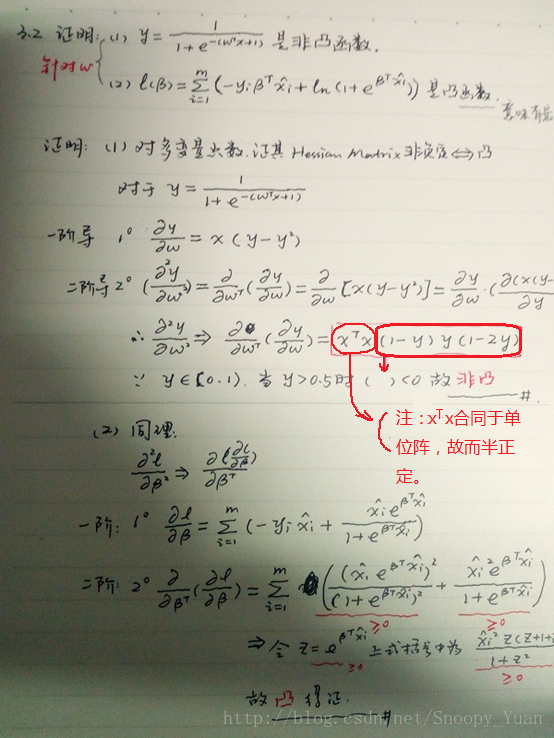 3.2 证明: (1) y = 1 / (1 + e^{-(wᵀx+1)}) 是非凸函数.
针对w
(2) l(β) = Σ_{i=1}^{m} (-yᵢβᵀx̂ᵢ + ln(1+e^{βᵀx̂ᵢ})) 是凸函数.
证明: (1) 对多变量函数. 证其 Hessian Matrix 非负定 ⇔ 凸
对于 y = 1 / (1 + e^{-(wᵀx+1)})
一阶导 1° ∂y/∂w = x(y-y²)
二阶导 2° (∂²y/∂w²) = ∂/∂wᵀ(∂y/∂w) = ∂/∂w[x(y-y²)] = ∂y/∂w·(∂(x(y-/∂y
∴ ∂²y/∂w² ⇒ ∂/∂wᵀ(∂y/∂w) = xᵀx (1-y) y (1-2y)
∵ y∈[0.1). 当 y>0.5时 ( ) <0 故 非凸 #.
注:xᵀx合同于单
位阵,故而半正
定。
(2) 同理.
∂²l/∂β² ⇒ ∂l(∂l/∂β)/∂βᵀ
一阶: 1° ∂l/∂β = Σ_{i=1}^{m} (-yᵢx̂ᵢ + x̂ᵢe^{βᵀx̂ᵢ} / (1+e^{βᵀx̂ᵢ}))
二阶: 2° ∂/∂βᵀ(∂l/∂β) = Σ_{i=1}^{m} ((x̂ᵢe^{βᵀx̂ᵢ})² / (1+e^{βᵀx̂ᵢ})² + x̂ᵢ²e^{βᵀx̂ᵢ} / (1+e^{βᵀx̂ᵢ}))
≥0 ≥0
⇒ 令 z = e^{βᵀx̂ᵢ} 上式括号中为 x̂ᵢ²z(z+1+ / 1+z²
≥0 ≥0
故凸得证. #
http://blog.csdn.net/Snoopy_Yuan